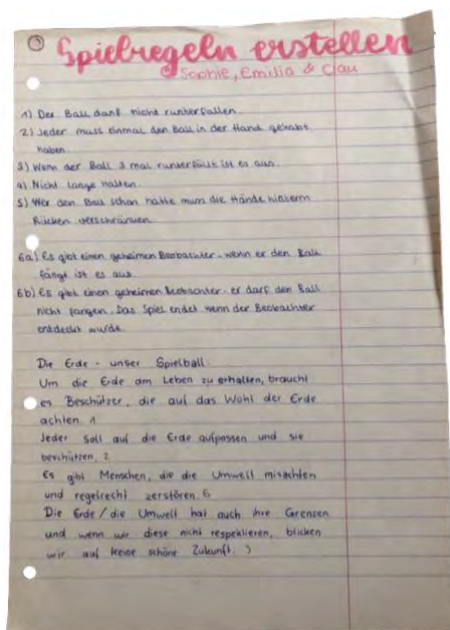 ① Spielregeln erstellen
Sophie, Emilia & Clau
1) Der Ball darf nicht runterfallen.
2) Jeder muss einmal den Ball in der Hand gehabt
haben.
3) Wenn der Ball 3 mal runterfällt ist es aus.
4) Nicht lange halten.
5) Wer den Ball schon hatte muss die Hände hinterm
Rücken verschränken.
6a) Es gibt einen geheimen Beobachter - wenn er den Ball
fängt ist es aus.
6b) Es gibt einen geheimen Beobachter - er darf den Ball
nicht fangen. Das Spiel endet wenn der Beobachter
entdeckt wurde.
Die Erde - unser Spielball
Um die Erde am Leben zu erhalten, braucht
es Beschützer, die auf das Wohl der Erde
achten. 1
Jeder soll auf die Erde aufpassen und sie
beschützen. 2
Es gibt Menschen, die die Umwelt missachten
und regelrecht zerstören. 6
Die Erde / die Umwelt hat auch ihre Grenzen
und wenn wir diese nicht respektieren, blicken
wir auf keine schöne Zukunft. 3